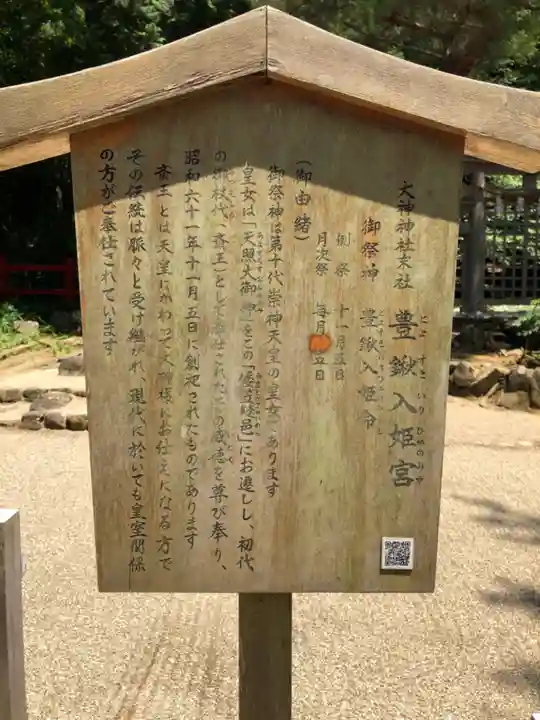 大神神社末社 豊鍬入姫宮
とよ すき いり ひめのみや
御祭神 豊鍬入姫命
とよすきいりひめのみこと
例祭 十一月五日
月次祭 毎月 五日
(御由緒)
御祭神は第十代崇神天皇の皇女であります
皇女は「天照大御神」をこの「倭笠縫邑」にお遷しし、初代
の御杖代(斎王)として奉仕されたその威徳を尊び奉り、
昭和六十一年十一月五日に創祀されたものであります
斎王とは天皇にかわって大神様にお仕えになる方で
その伝統は脈々と受け継がれ、現代に於いても皇室関係
の方がご奉仕されています